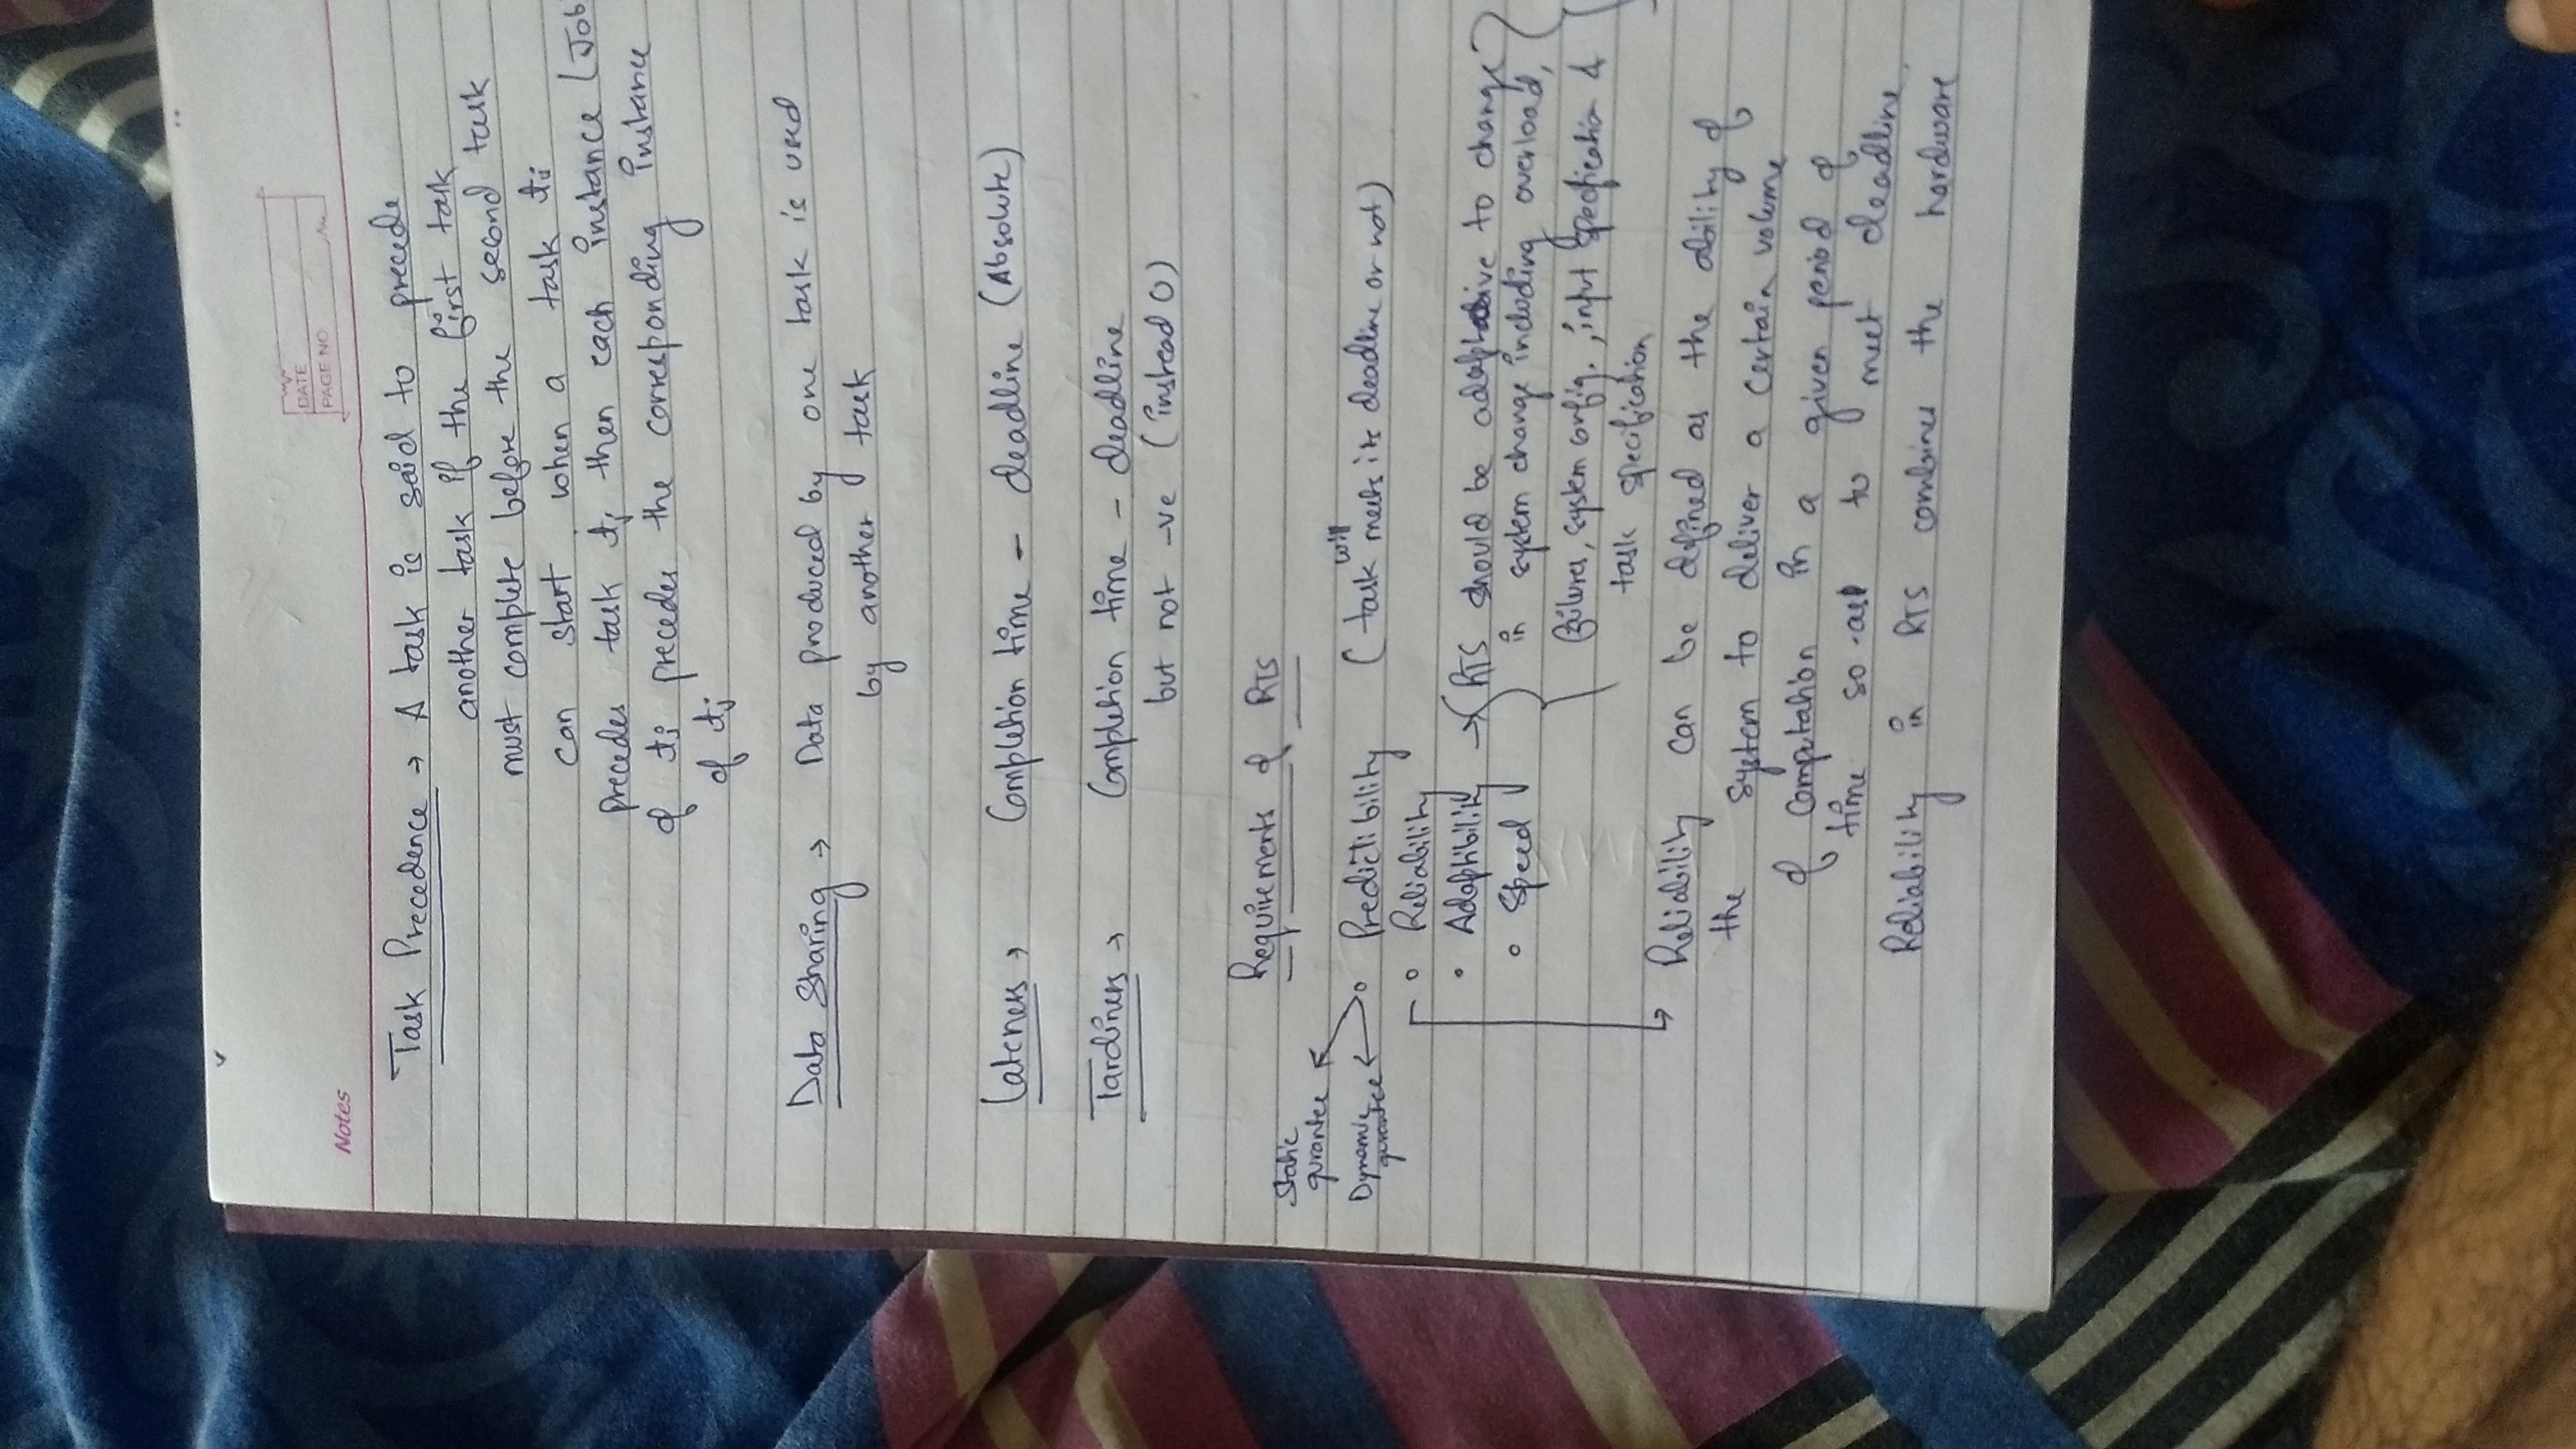 Notes
DATE
PAGE NO
Task Precedence → A task is said to precede
another task if the first task
must complete before the second task
can start when a task ti
precedes task tj then each instance (Job
of ti precedes the corresponding instance
of tj
Data Sharing → Data produced by one task is used
by another task
Lateness → Completion time - deadline (Absolute)
Tardiness → Completion time - deadline
but not -ve (instead 0)
Requirements of RTS
Static
gurantee
Dynamic
gurantee
Predictibility (task will meets its deadline or not)
Reliability
Adaptibility → RTS should be adaptive to change
in system change including overload,
Speed
failures, system config., input specification &
task specification
Reliability can be defined as the ability of
the system to deliver a certain volume
of computation in a given period of
time so as to meet deadline
Reliability in RTS combines the hardware